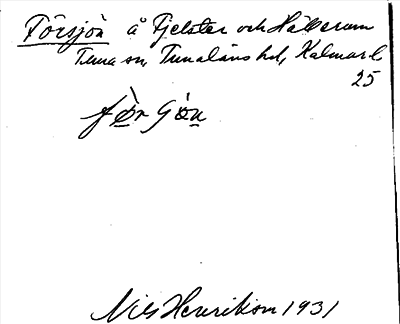 Försjön å Fjelster och Hällerum
Tuna sn, Tunaläns hd, Kalmar l
25
fòr Sjön
Nils Henrikson 1931